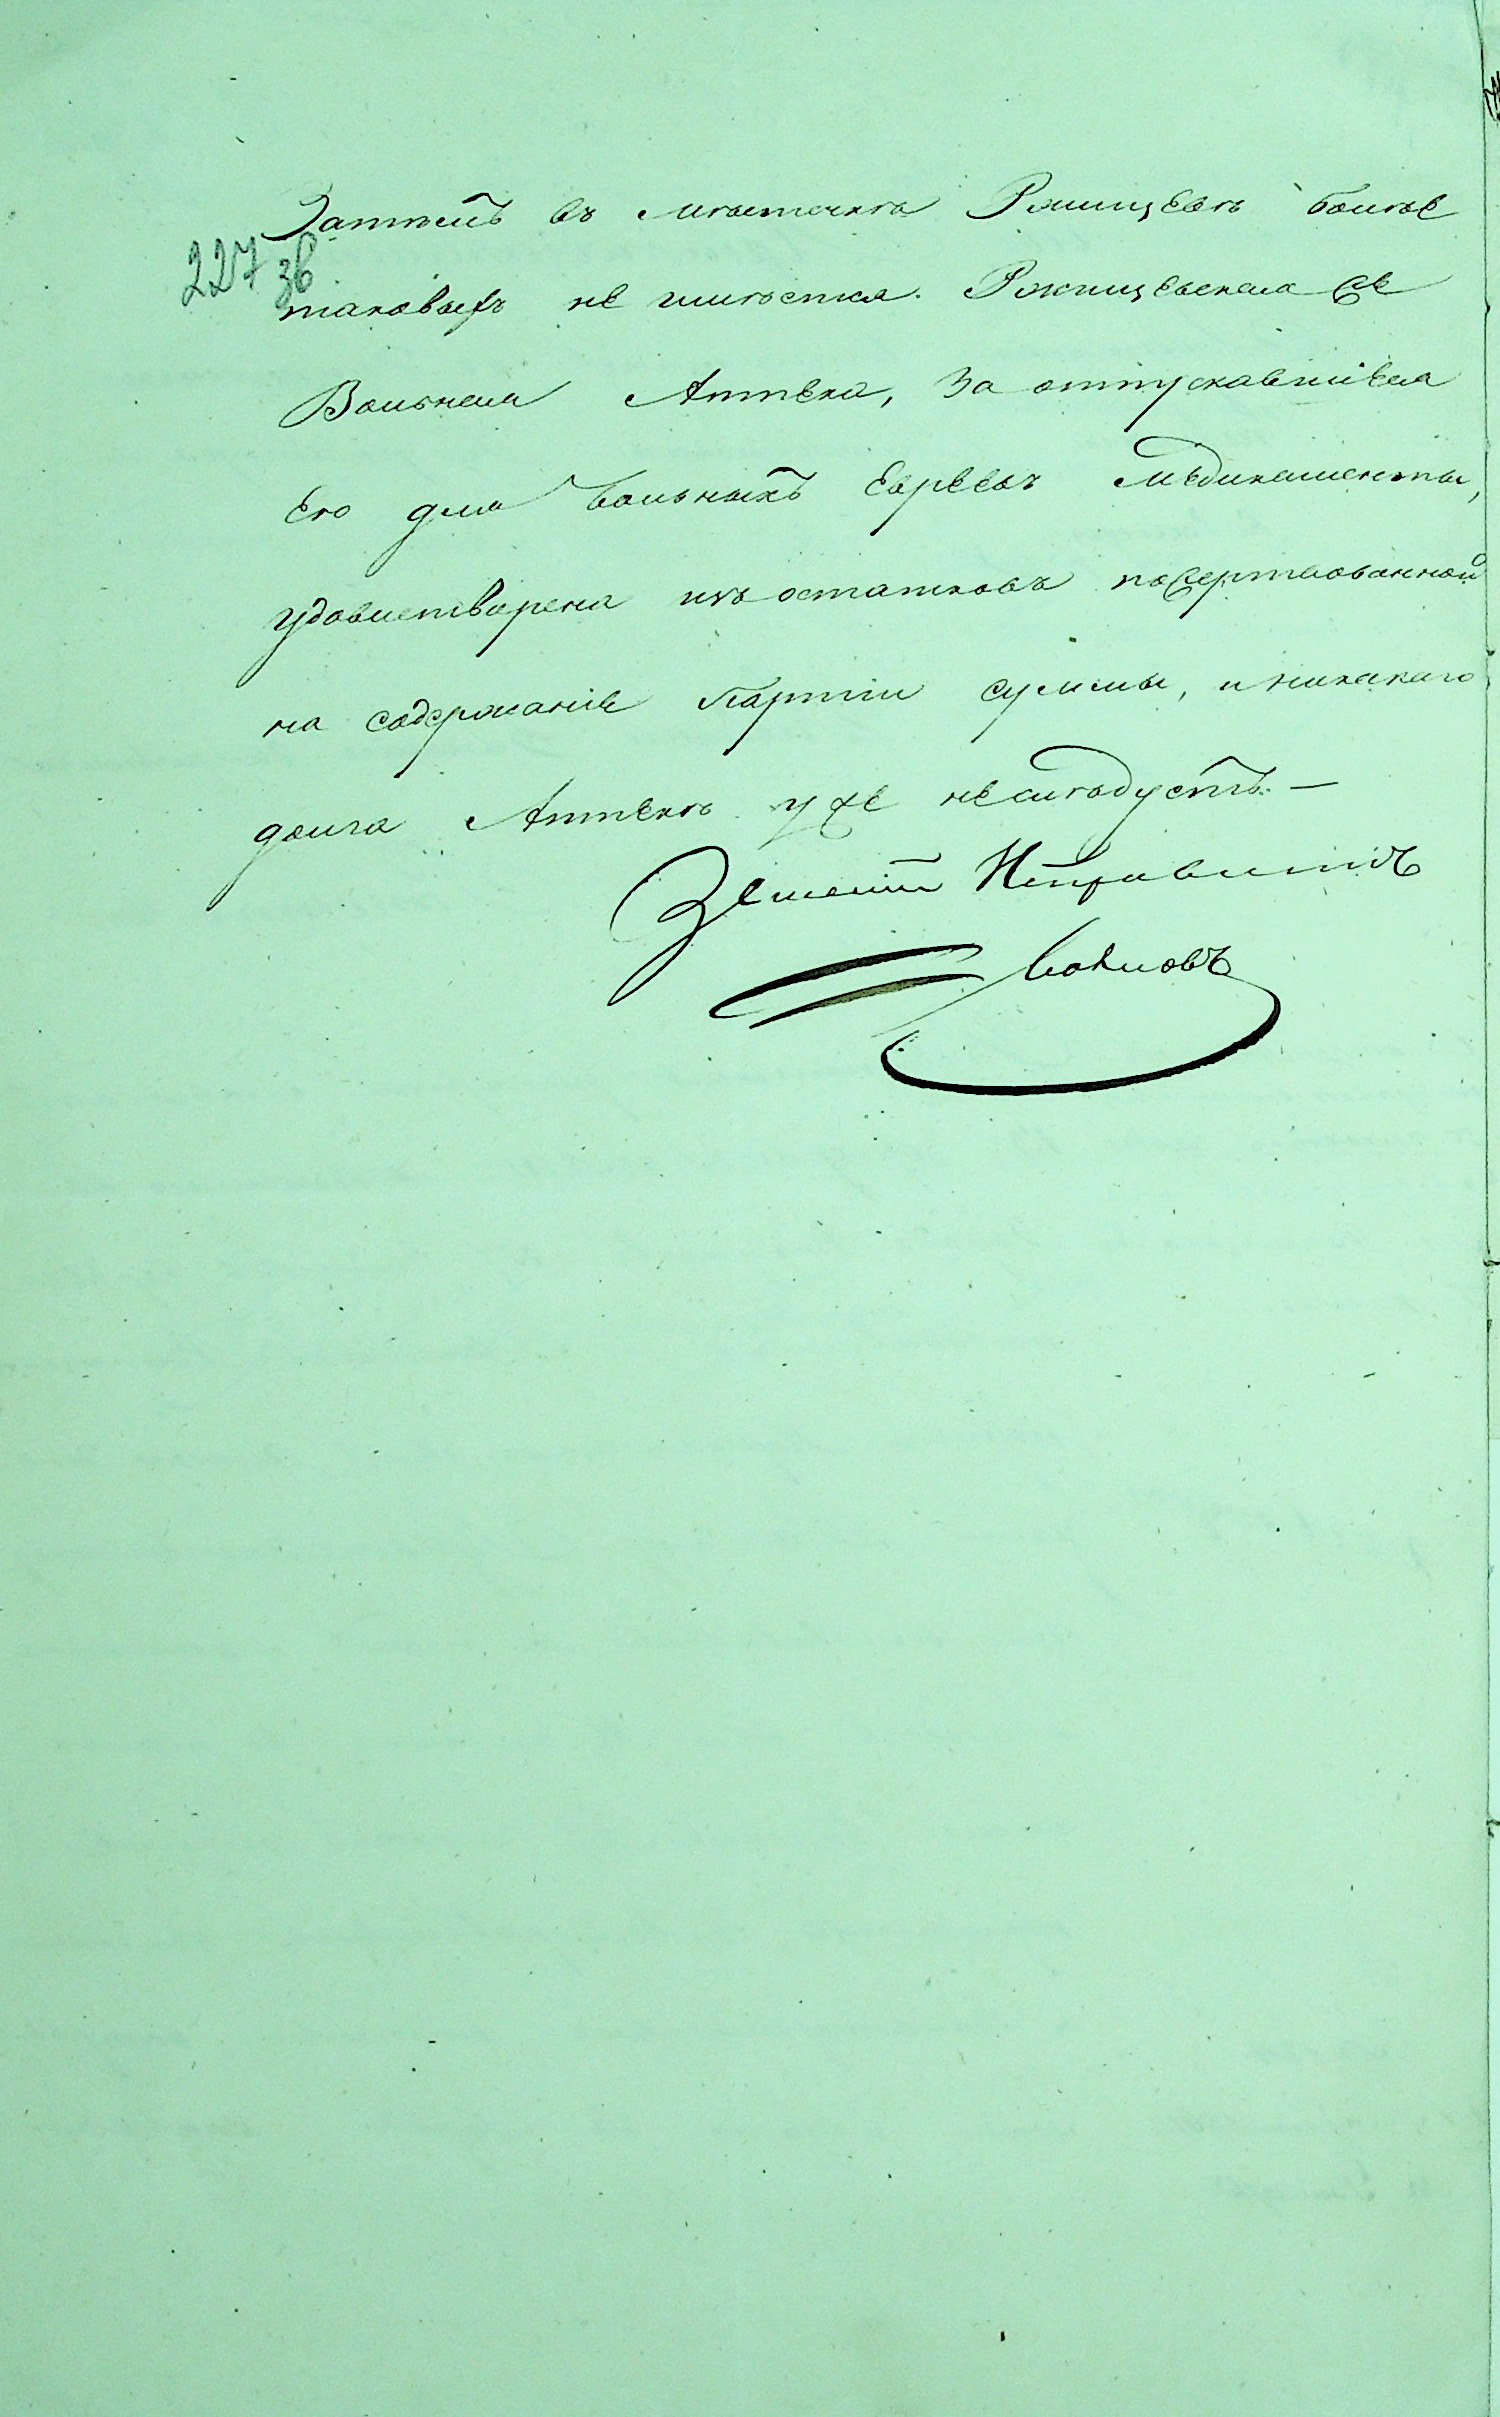 Затѣмъ въ мѣстечкѣ Ржищевѣ болѣе
227 зв
таковыхъ не имѣется. Ржищевская же
Вольная Аптека, за отпускавшіеся
Ею для больныхъ Евреевъ Медикаменты,
удовлетворена изъ остатковъ пожертвованной
на содержаніе Партіи суммы, и никакого
долга Аптекѣ уже неслѣдуетъ. —
Земскій Исправникъ